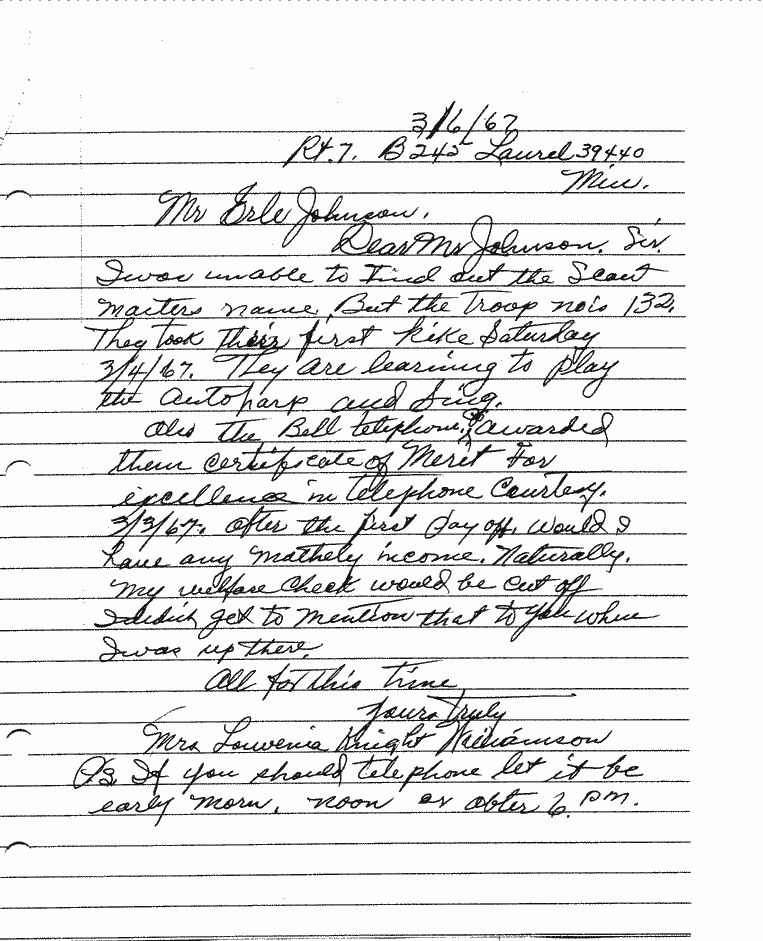 3/6/67
Rt. 7. B 245 Laurel 39440
Miss.
Mr Erle Johnson.
Dear Mr Johnson. Sir.
I was unable to Find out the Scout
masters name, But the Troop no is 132.
They took their first hike Saturday
3/4/67. They are learining to play
the Autoharp and Sing.
Also the Bell telephone, awarded
them certificate of Merit For
excellence in telephone Courtesy.
3/3/67. After the first day off. would I
have any mothely income. Naturally.
my welfare Check would be cut off
I didn get to mention that to you when
I was up there.
All for this time
yours truly
Mrs Louvenia Knight Williamson
P.S If you should telephone let it be
early morn, noon or after 6 PM.